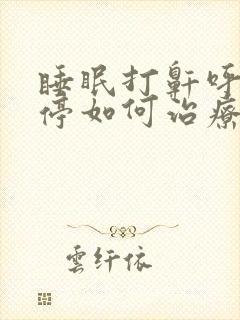 睡眠打鼾呼
停如何治療
雲纤依